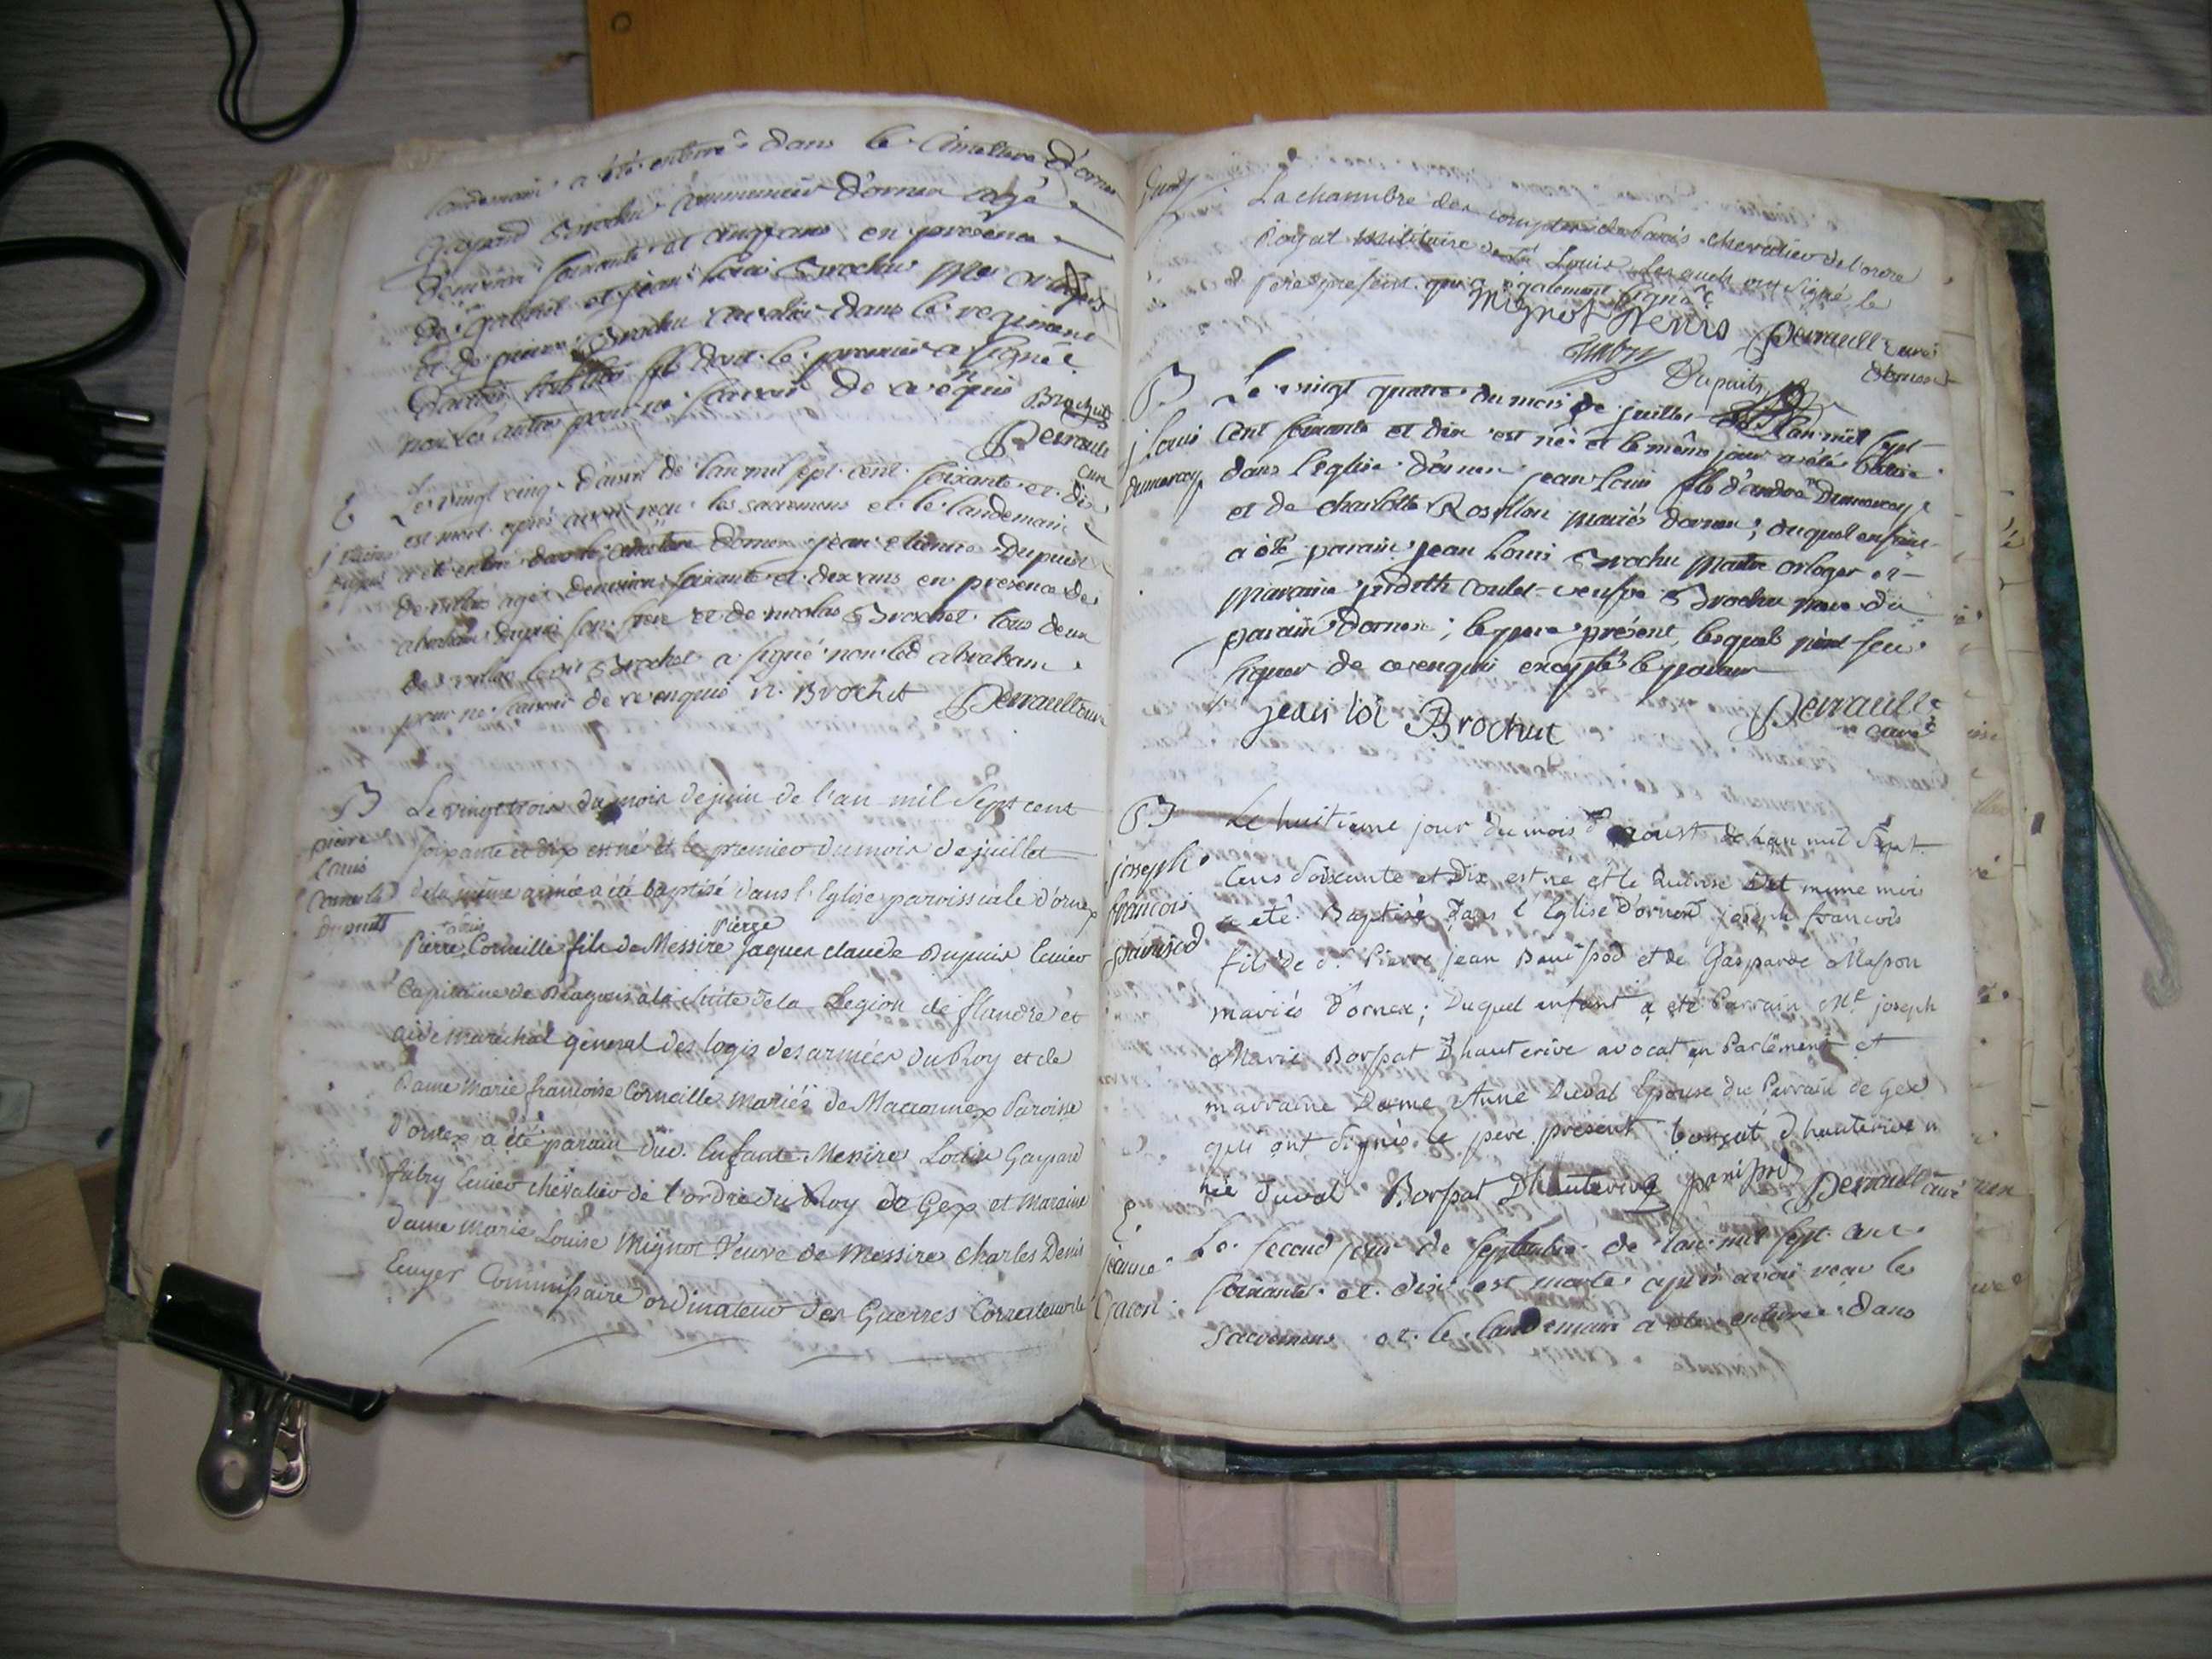 landemain a été enterré dans le Cimetiere d'ornex
gaspard Brochu communier d'ornex agé
d'environ soixante et cinq ans en presence
de gabriel et jean louis Brochu
et de pierre Brochu cavalier dans le regiment
fils dont le premier a signé
non les autres pour ne scavoir de ce enquis
Brochut
Perrault
curé
E
Le vingt cinq d'avril de l'an mil sept cent soixante et dix
est mort aprés avoir reçu les sacremens et le landemain
j etienne
dupuis
a été enterré dans le cimetiere d'ornex jean etienne Dupuis
agé d'environ soixante et dix ans en presence de
abraham dupuis son frere et de nicolas Brochet tous deux
Brochet a signé non led abraham
pour ne scavoir de ce enquis n. Brochet Perrault curé
B
pierre
Louis
Corneille
Dupuits
Le vingt trois du mois de juin de l'an mil Sept cent
soixante et dix est né et le premier du mois de juillet
de la même année a été baptisé dans l'Eglise paroissiale d'ornex
Louis Pierre
Pierre Corneille fils de Messire Jaques claude Dupuis Ecuier
Capitaine de Dragons à la suite de la Legion de flandre et
aide maréchal géneral des logis des armées du Roy et de
Dame Marie françoise Corneille mariés de Maconnex Paroisse
d'ornex a été parain dud. Enfant Messire Louis Gaspard
fabry Ecuier chevalier de l'ordre du Roy de Gex et Maraine
dame Marie Louise Mignot Veuve de Messire Charles Denis
Ecuyer Commissaire ordinateur des Guerres Correcteur de
La chambre des comptes de Paris chevalier de l'ordre
Royal Militaire de St Louis Lesquels ont signé le
père present qui a également signé
Mignot Denis Perrault curé
fabry Dupuits d'ornex
B
j Louis
dumarcay
Le vingt quatre du mois de juillet de l'an mil sept
cent soixante et dix est né et le même jour a été batisé
dans l'eglise d'ornex jean Louis fils d'andré Dumarcay
et de charlotte Rosillon mariés d'ornex ; duquel enfant
a été parain jean Louis Brochu maitre orloger et
maraine judith coulet veufve Brochu mere du
parain d'ornex ; le pere présent, lesquels n'ont sçu
signer de ce enquis excepté le parain
jean loi Brochut Perrault
curé
B
joseph
francois
panissod
Le huitieme jour du mois d'aoust de l'an mil Sept
Cens Soixante et Dix est né et le Quinse Det meme mois
a eté Baptisé Dans l'Eglise D'ornex joseph francois
fils de Sr. Pierre jean Panissod et de Gasparde Masson
mariés D'ornex ; Duquel enfant a eté Parrain Mr. joseph
Marie Borssat D'hauterive avocat en Parlement et
marraine Dame Anne Duval Epouse du Parrain de Gex
qui ont Signés le pere present borssat d'hauterive
née duval Borssat D'hauterive panissod Perrault curé
E
jeanne
Le second jour de septembre de l'an mil sept cent
soixante et dix est morte après avoir reçu les
Sacremens et le landemain a été enterrée dans